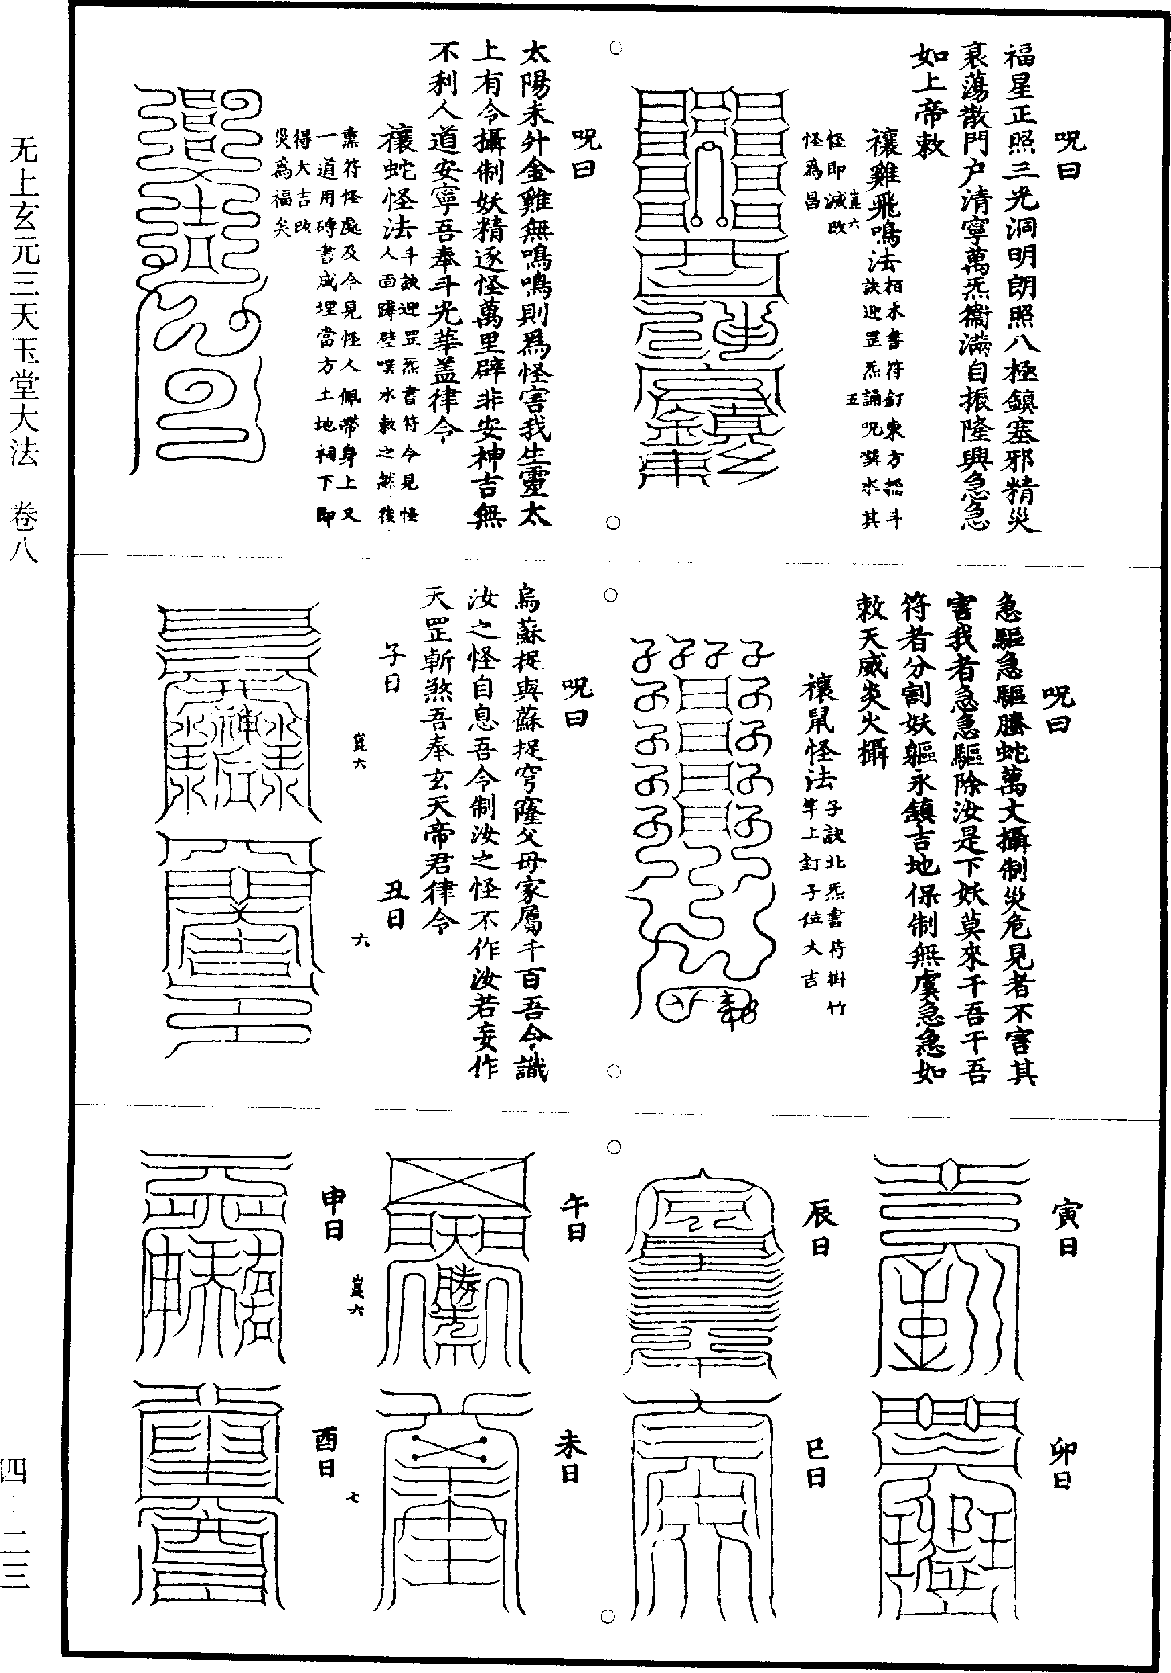 呪曰
福星正照三光洞明朗照八極鎮塞邪精災
衰蕩散門户清寧萬炁衞滿自振隆興急急
如上帝敕
禳雞飛鳴法
柏木書符釘東方抵斗
訣迎罡炁誦呪噀水其
怪即滅改
怪爲昌
呪曰
太陽未升金雞無鳴鳴則爲怪害我生靈太
上有令攝制妖精逐怪萬里辟非安神吉無
不利人道安寧吾奉斗光華蓋律令
禳蛇怪法
斗訣迎罡炁書符令見怪
人面蹲壁噗水敕之然後
熏符怪處及令見怪人佩帶身上又
一道用磚書咸埋當方土地祠下即
得大吉改
災爲福矣
呪曰
急驅急驅騰蛇萬丈攝制災危見者不害其
害我者急急驅除汝是下妖莫來干吾干吾
符者分割妖軀永鎮吉地保制無虞急急如
敕天威炎火攝
禳鼠怪法
子訣北炁書符掛竹
竿上釘子位大吉
呪曰
烏蘇捉與蘇捉穹窿父母家屬千百吾令識
汝之怪自息吾令制汝之怪不作汝若妄作
天罡斬煞吾奉玄天帝君律令
子日
丑日
寅日
卯日
辰日
巳日
午日
未日
申日
酉日
无上玄元三天玉堂大法 卷八
四—二三